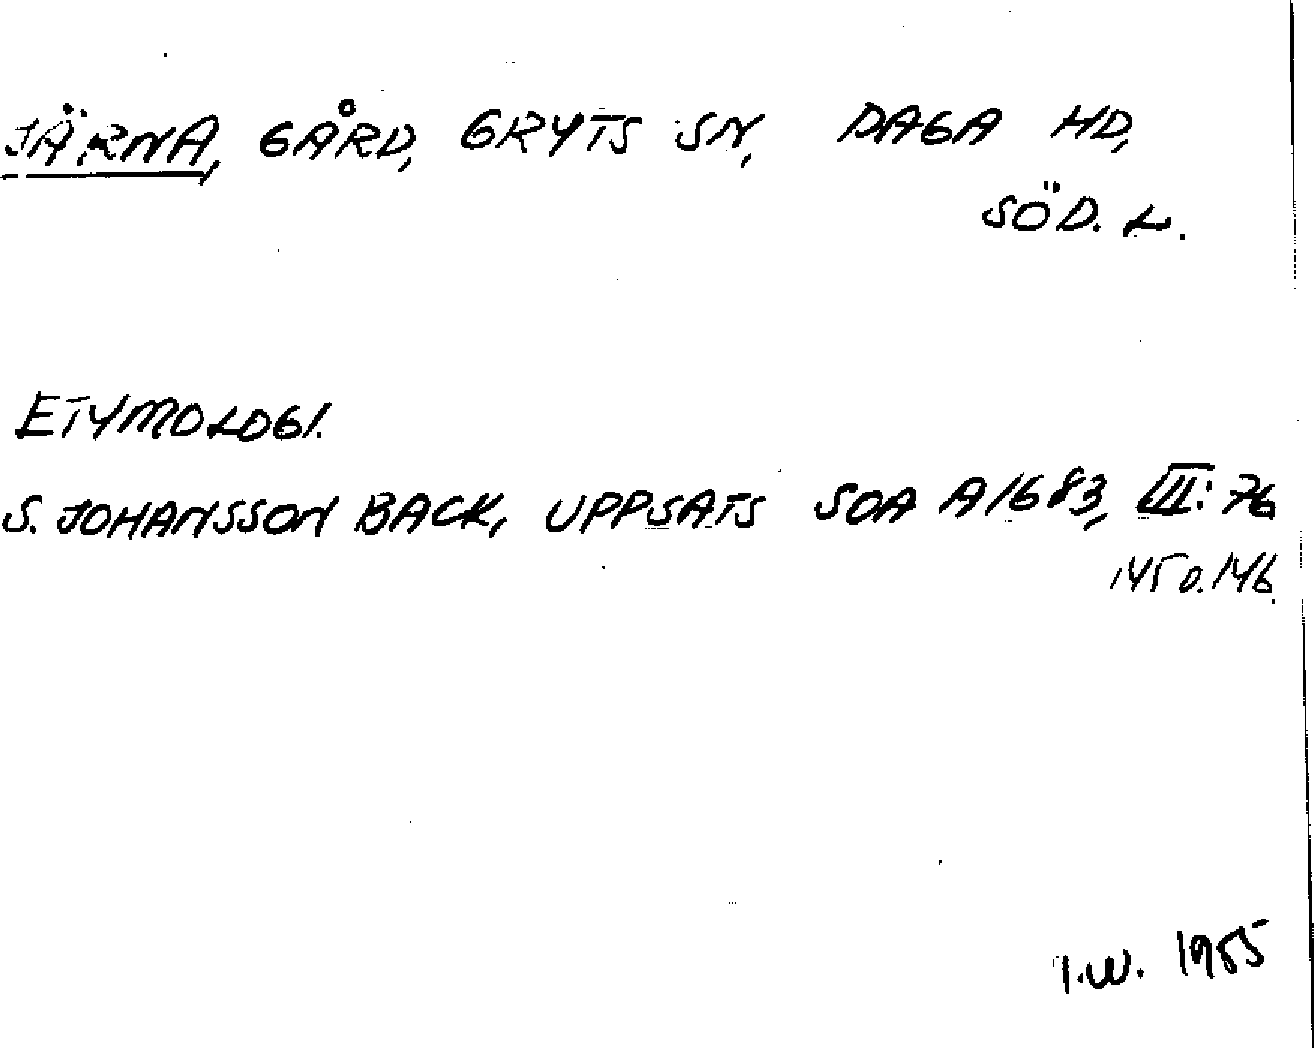 JÄRNA, GÅRD, GRYTS SN, DAGA HD,
SÖD. L.
ETYMOLOGI.
S. JOHANSSON BACK, UPPSATS SOA A1683, III: 76
145 o. 146.
I.W. 1955